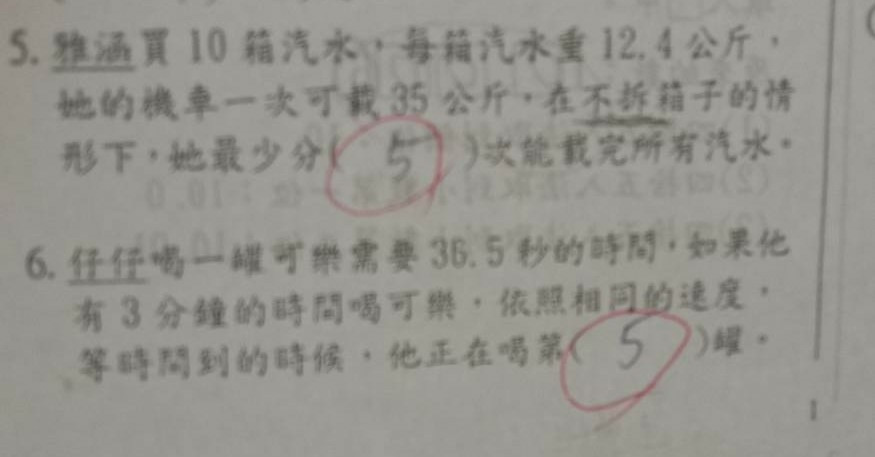 5. 雅涵買 10 箱汽水，每箱汽水重 12.4 公斤，
她的機車一次可載 35 公斤，在不拆箱子的情
形下，她最少分( 5 )次能載完所有汽水。
6. 仔仔喝一罐可樂需要 36.5 秒的時間，如果他
有 3 分鐘的時間喝可樂，依照相同的速度，
等時間到的時候，他正在喝第( 5 )罐。
1